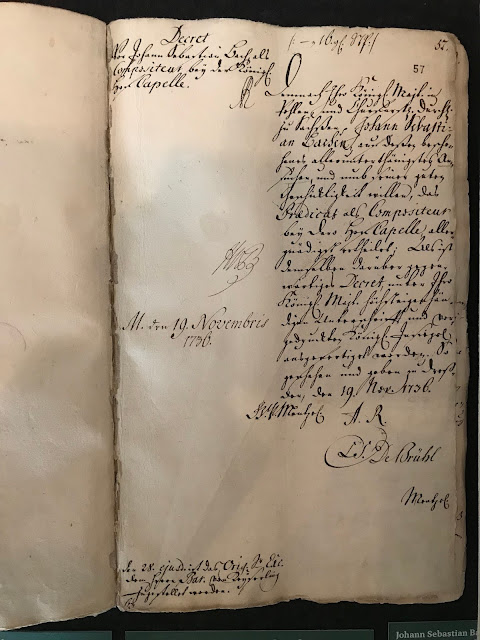 Decret
Vor Johann Sebastian Bach, als
Compositeur bey der Königl.
Hof Capelle.
57.
57
Demnach Ihre Königl. Maj. in
Pohlen, und Churfürstl. Durchl.
zu Sachßen, Johann Sebasti-
an Bachen, auf deßen besche-
henes allerunterthänigstes An-
suchen, und umb seiner guten
Geschicklichkeit willen, das
Praedicat als Compositeur
bey Dero Hof Capelle, aller-
gnädigst ertheilet; Als ist
demselben darüber gegen-
wärtiges Decret, unter Ihro
Königl. Maj. höchsteigenhän-
digen Unterschrifft und vor-
gedruckten Königl. Innsiegel,
ausgefertiget worden. So
geschehen und geben zu Dreß-
den, den 19. Nov. 1736.
M. den 19. Novembris
1736.
A. R.
De Brühl
Mentzel
den 28. ejusd. ist das Orig.
dem Herrn Bar. von Keyserling
zugestellet worden.
Johann Sebastian B